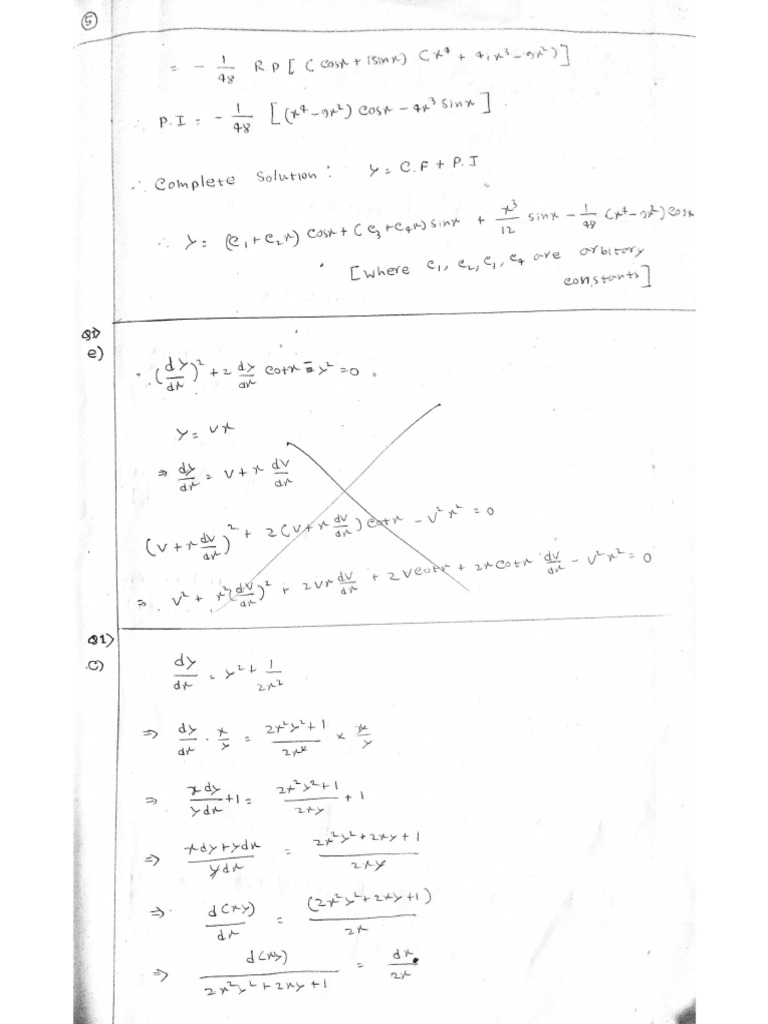 5
= - 1/48 RP [ (cosx + isinx) (x⁴ + 4ix³ - 9x²)]
∴ P.I = - 1/48 [(x⁴-9x²) cosx - 4x³ sinx].
∴ Complete Solution : y = C.F + P.I
∴ y = (c₁+c₂x) cosx + (c₃+c₄x) sinx + x³/12 sinx - 1/48 (x⁴-9x²) cosx
[where c₁, c₂, c₁, c₄ are arbitory
constants]
e)
(dy/dx)² + 2 dy/dx cotx - y² = 0
y = vx
⇒ dy/dx = v + x dv/dx
(v + x dv/dx)² + 2(v + x dv/dx) cotx - v²x² = 0
⇒ v² + x²(dv/dx)² + 2vx dv/dx + 2vcotx + 2xcotx dv/dx - v²x² = 0
Q1)
c)
dy/dx = y² + 1/2x²
⇒ dy/dx · x/y = 2x²y²+1/2x² × x/y
⇒ xdy/ydx + 1 = 2x²y²+1/2xy + 1
⇒ xdy+ydx/ydx = 2x²y²+2xy+1/2xy
⇒ d(xy)/dx = (2x²y²+2xy+1)/2x
⇒ d(xy)/2x²y²+2xy+1 = dx/2x